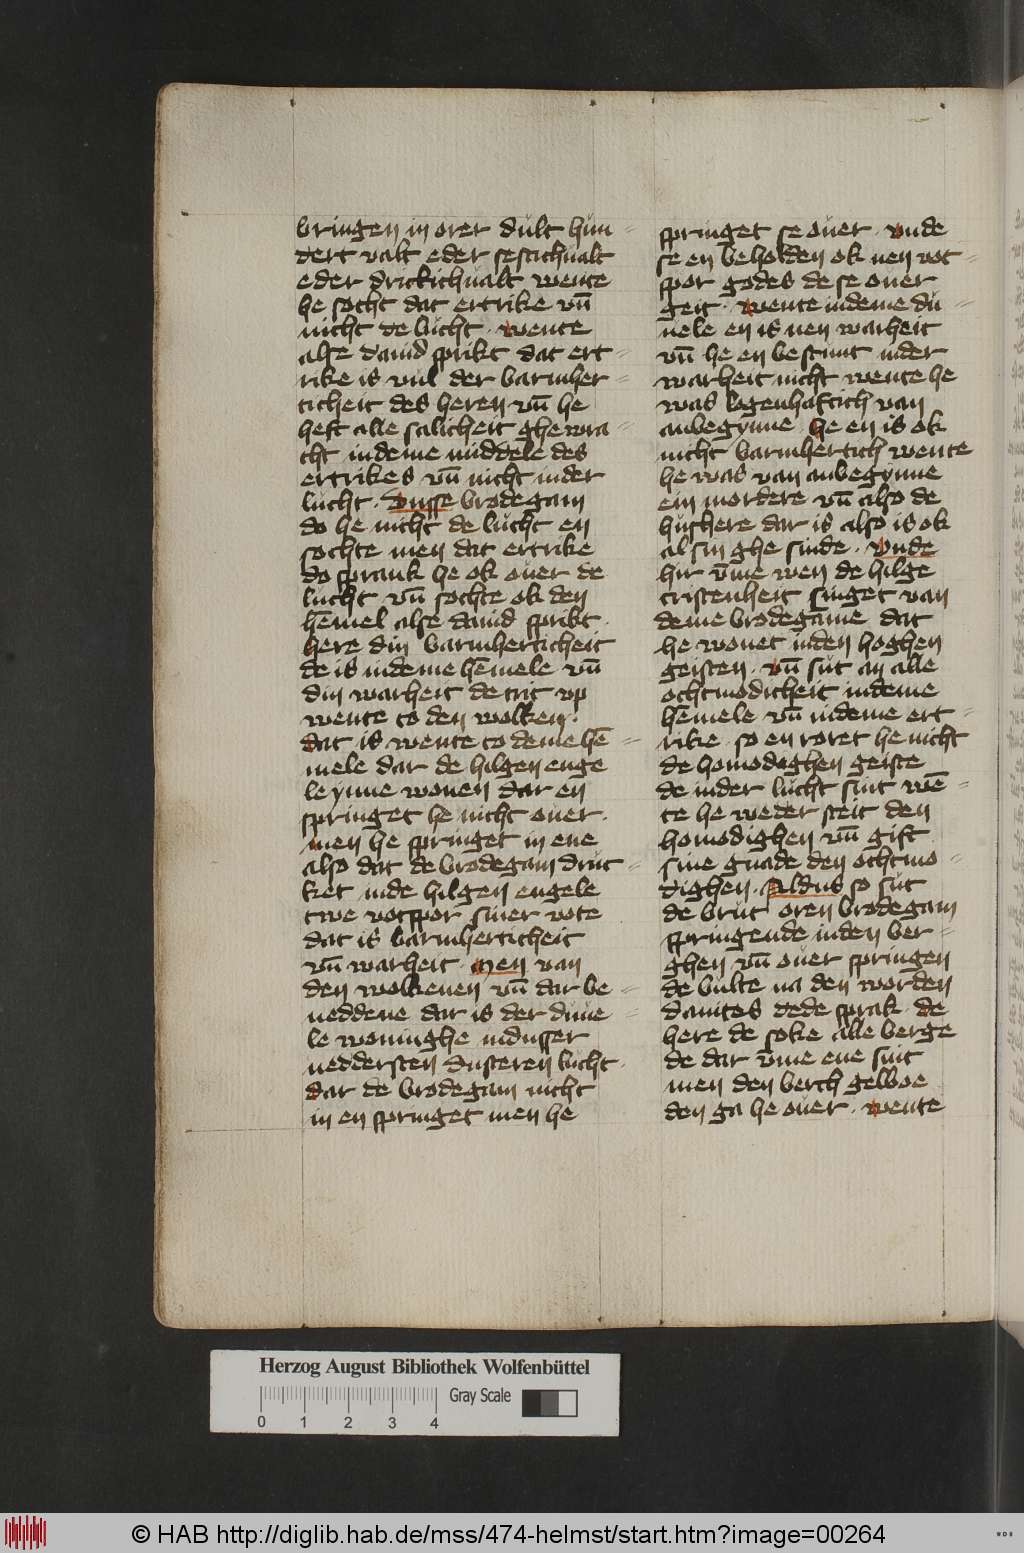 bringen in orer dult hun-
dert valt eder sestichualt
eder drickichualt wente
he socht dat ertrike vn̄
nicht de lucht · wente
alse dauid sprikt dat ert-
rike is vul der barmher-
ticheit des heren vn̄ he
heft alle salicheit ghewra-
cht indeme middele des
ertrikes vn̄ nicht inder
lucht · Dusse brodegam
do he nicht de lucht en
sochte men dat ertrike
do sprank he ok ouer de
lucht vn̄ sochte ok den
hēmel alse dauid sprikt ·
here din barmherticheit
de is indeme hēmele vn̄
din warheit de trit vp
wente to den wolken ·
dat is wente to deme hē-
mele dar de hilgen enge
le ynne wonen dar en
springet he nicht ouer ·
men he springet in ene
also dat de brodegam druc-
ket inde hilgen engele
twe votspor siner vote
dat is barmherticheit
vn̄ warheit · Men van
den wolkenen vn̄ dar be-
neddene dar is der duue-
le woninghe indusser
neddersten dusteren lucht ·
dar de brodegam nicht
in en springet men he
springet se ouer · vnde
se en beholden ok nen vot-
spor godes de se ouer
geit · wente indeme du-
uele en is nen warheit
vn̄ he en bestunt inder
warheit nicht wente he
was logenhaftich van
anbegynne he en is ok
nicht barmhertich wente
he was van anbegynne
ein mordere vn̄ also de
hushere dar is also is ok
al sin ghesinde · Vnde
hir v̄me wen de hilge
cristenheit singet van
deme brodegāme dat
he wonet inden hoghen
geisten · vn̄ sut an alle
othmodicheit indeme
hēmele vn̄ indeme ert-
rike so en roret he nicht
de homodeghen geiste
de inder lucht sint wē-
te he wedersteit den
homodighen vn̄ gift
sine gnade den othmo-
dighen · Aldus so sut
de brut oren brodegam
springende inden ber-
ghen vn̄ ouer springen
de bulte na den worden
dauites dede sprak · de
here de soke alle berge
de dar v̄me ene sint
men den berch gelboe
den ga he ouer · wente
Herzog August Bibliothek Wolfenbüttel
Gray Scale
0 1 2 3 4
© HAB http://diglib.hab.de/mss/474-helmst/start.htm?image=00264